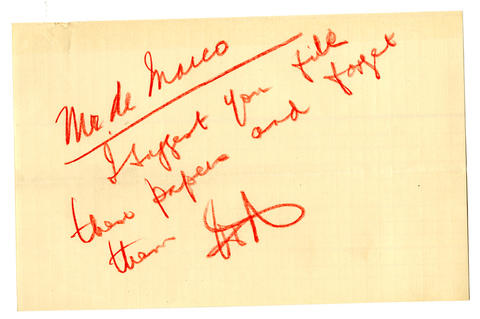 Mr. de Marco
I suggest you file
these papers and forget
them